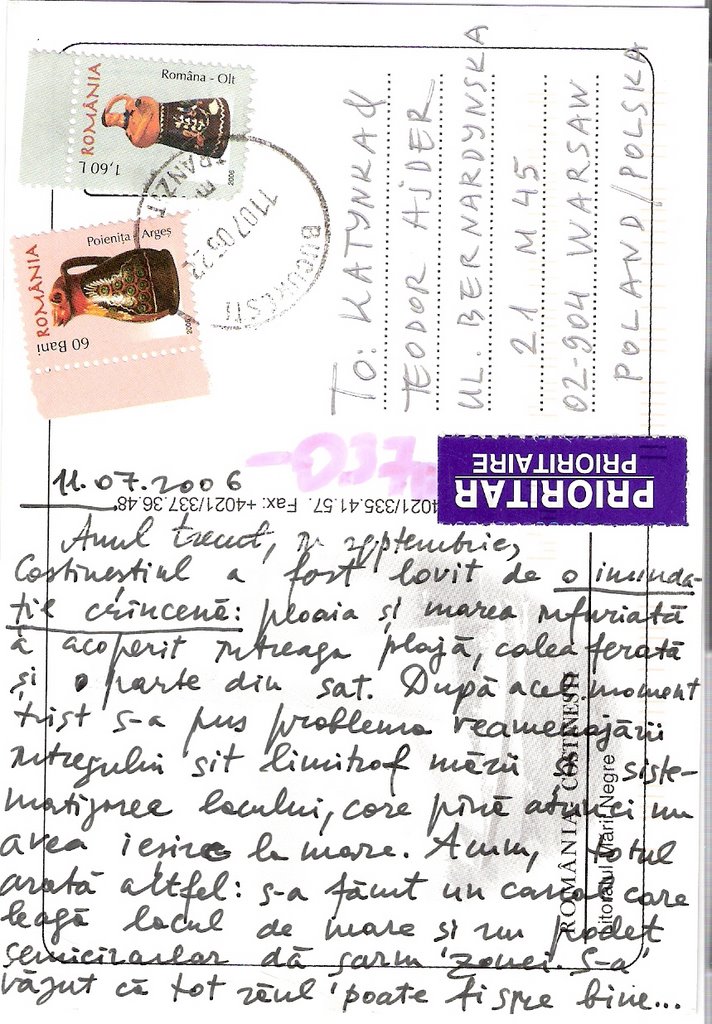 ROMÂNIA
Româna - Olt
1,60 L
2006
ROMÂNIA
Poienița - Argeș
60 Bani
2006
BUCUREȘTI
11 07 06
To: KATYNKA &
TEODOR AJDER
UL. BERNARDYNSKA
21 M 45
02-904 WARSAW
POLAND/POLSKA
PRIORITAR
PRIORITAIRE
4021/335.41.57. Fax: +4021/337.36.48
ROMÂNIA COSTINEȘTI
Litoralul Mării Negre
11.07.2006
Anul trecut, în septembrie,
Costineștiul a fost lovit de o inunda-
ție crîncenă: ploaia și marea înfuriată
a acoperit întreaga plajă, calea ferată
și o parte din sat. După acel moment
trist s-a pus problema reamenajării
întregului sit limitrof mării și siste-
matizarea lacului, care pînă atunci nu
avea ieșire la mare. Acum, totul
arată altfel: s-a făcut un canal care
leagă lacul de mare și un podet
semicircular dă șarm zonei. S-a
văzut că tot răul poate fi spre bine...